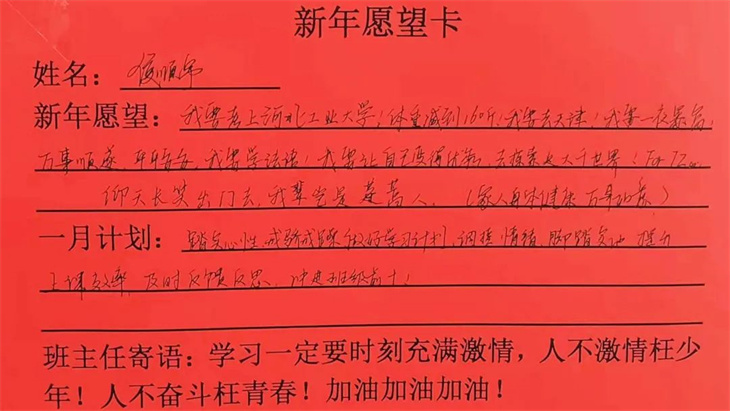 新年愿望卡
姓名：侯顺
新年愿望：我要考上河北工业大学！体重减到160斤！我要去天津！我要一夜暴富，
万事顺遂，平平安安，我要学法语！我要让自己变得优秀，去探索这大千世界！
仰天长笑出门去，我辈岂是蓬蒿人。（家人身体健康 万事如意）
一月计划：踏实心性，戒骄戒躁 做好学习计划，调整情绪，脚踏实地 提升
上课效率，及时反馈反思，冲进班级前十！
班主任寄语：学习一定要时刻充满激情，人不激情枉少
年！人不奋斗枉青春！加油加油加油！